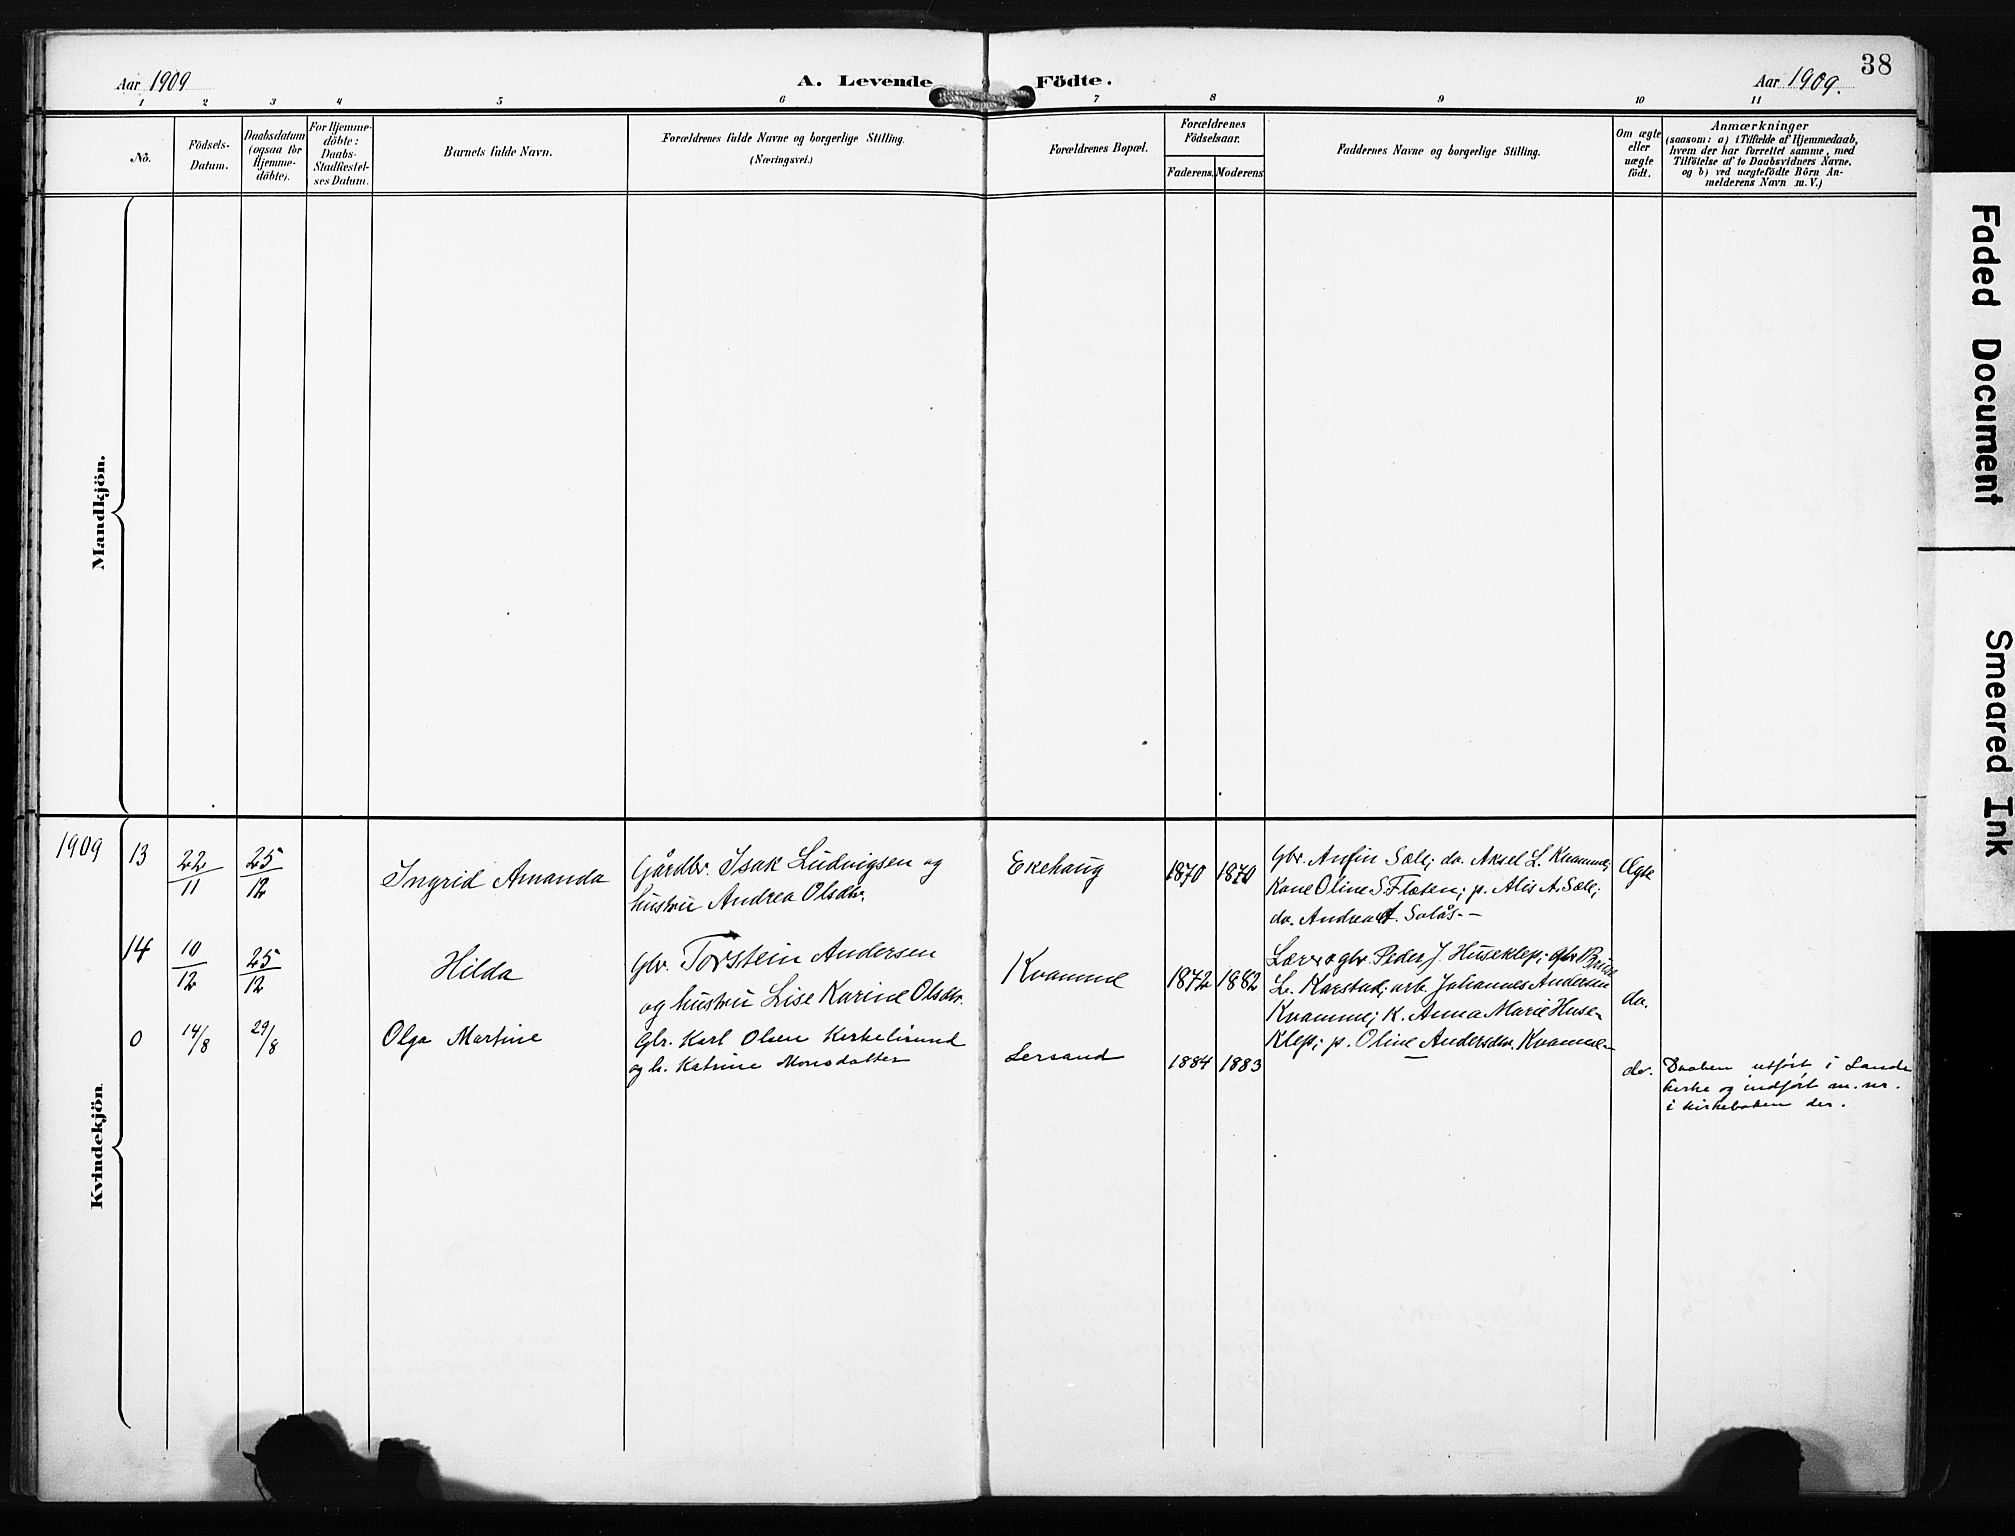 Aar 1909
A. Levende Födte.
Aar 1909.
38
1 2 3 4 5 6 7 8 9 10 11
No.
Födsels-
Datum.
Daabsdatum
(ogsaa for
Hjemme-
döbte).
For Hjemme-
döbte:
Daabs-
Stadfæstel-
ses Datum.
Barnets fulde Navn.
Forældrenes fulde Navne og borgerlige Stilling.
(Næringsvei.)
Forældrenes Bopæl.
Forældrenes
Födselsaar.
Faderens. Moderens
Faddernes Navne og borgerlige Stilling.
Om ægte
eller
uægte
födt.
Anmærkninger
(saasom: a) i Tilfælde af Hjemmedaab,
hvem der har forrettet samme, med
Tilföielse af to Daabsvidners Navne.
og b) ved uægtefödte Börn An-
melderens Navn m. V.)
Mandkjön.
Kvindekjön
1909
13
22/11
25/12
Ingrid Amanda
Gårdbr. Isak Ludvigsen og
hustru Andrea Olsdtr.
Ekehaug
1870
1870
Gbr. Anfin Sæle; do. Aksel L. Kvamme;
Kone Oline S. Flæten; p. Alis A. Sæle;
do. Andrea A. Solås.-
Ægte
14
10/12
25/12
Hilda
Gbr. Torstein Andersen
og hustru Lise Karine Olsdtr.
Kvamme
1872
1882
Lærer o gbr. Peder J. Huseklep; gbr
L. Karstad; arb. Johannes Andersen
Kvamme; K. Anna Marie Huse-
klep; p. Oline Andersdtr. Kvamme-
do.
0
14/8
29/8
Olga Martine
Gbr. Karl Olsen Kirkelisund
og h. Katrine Monsdatter
Lersand
1884
1883
do.
Daaben utført i Lande
kirke og indført m. nr.
i kirkeboken der.
Faded Document
Smeared Ink